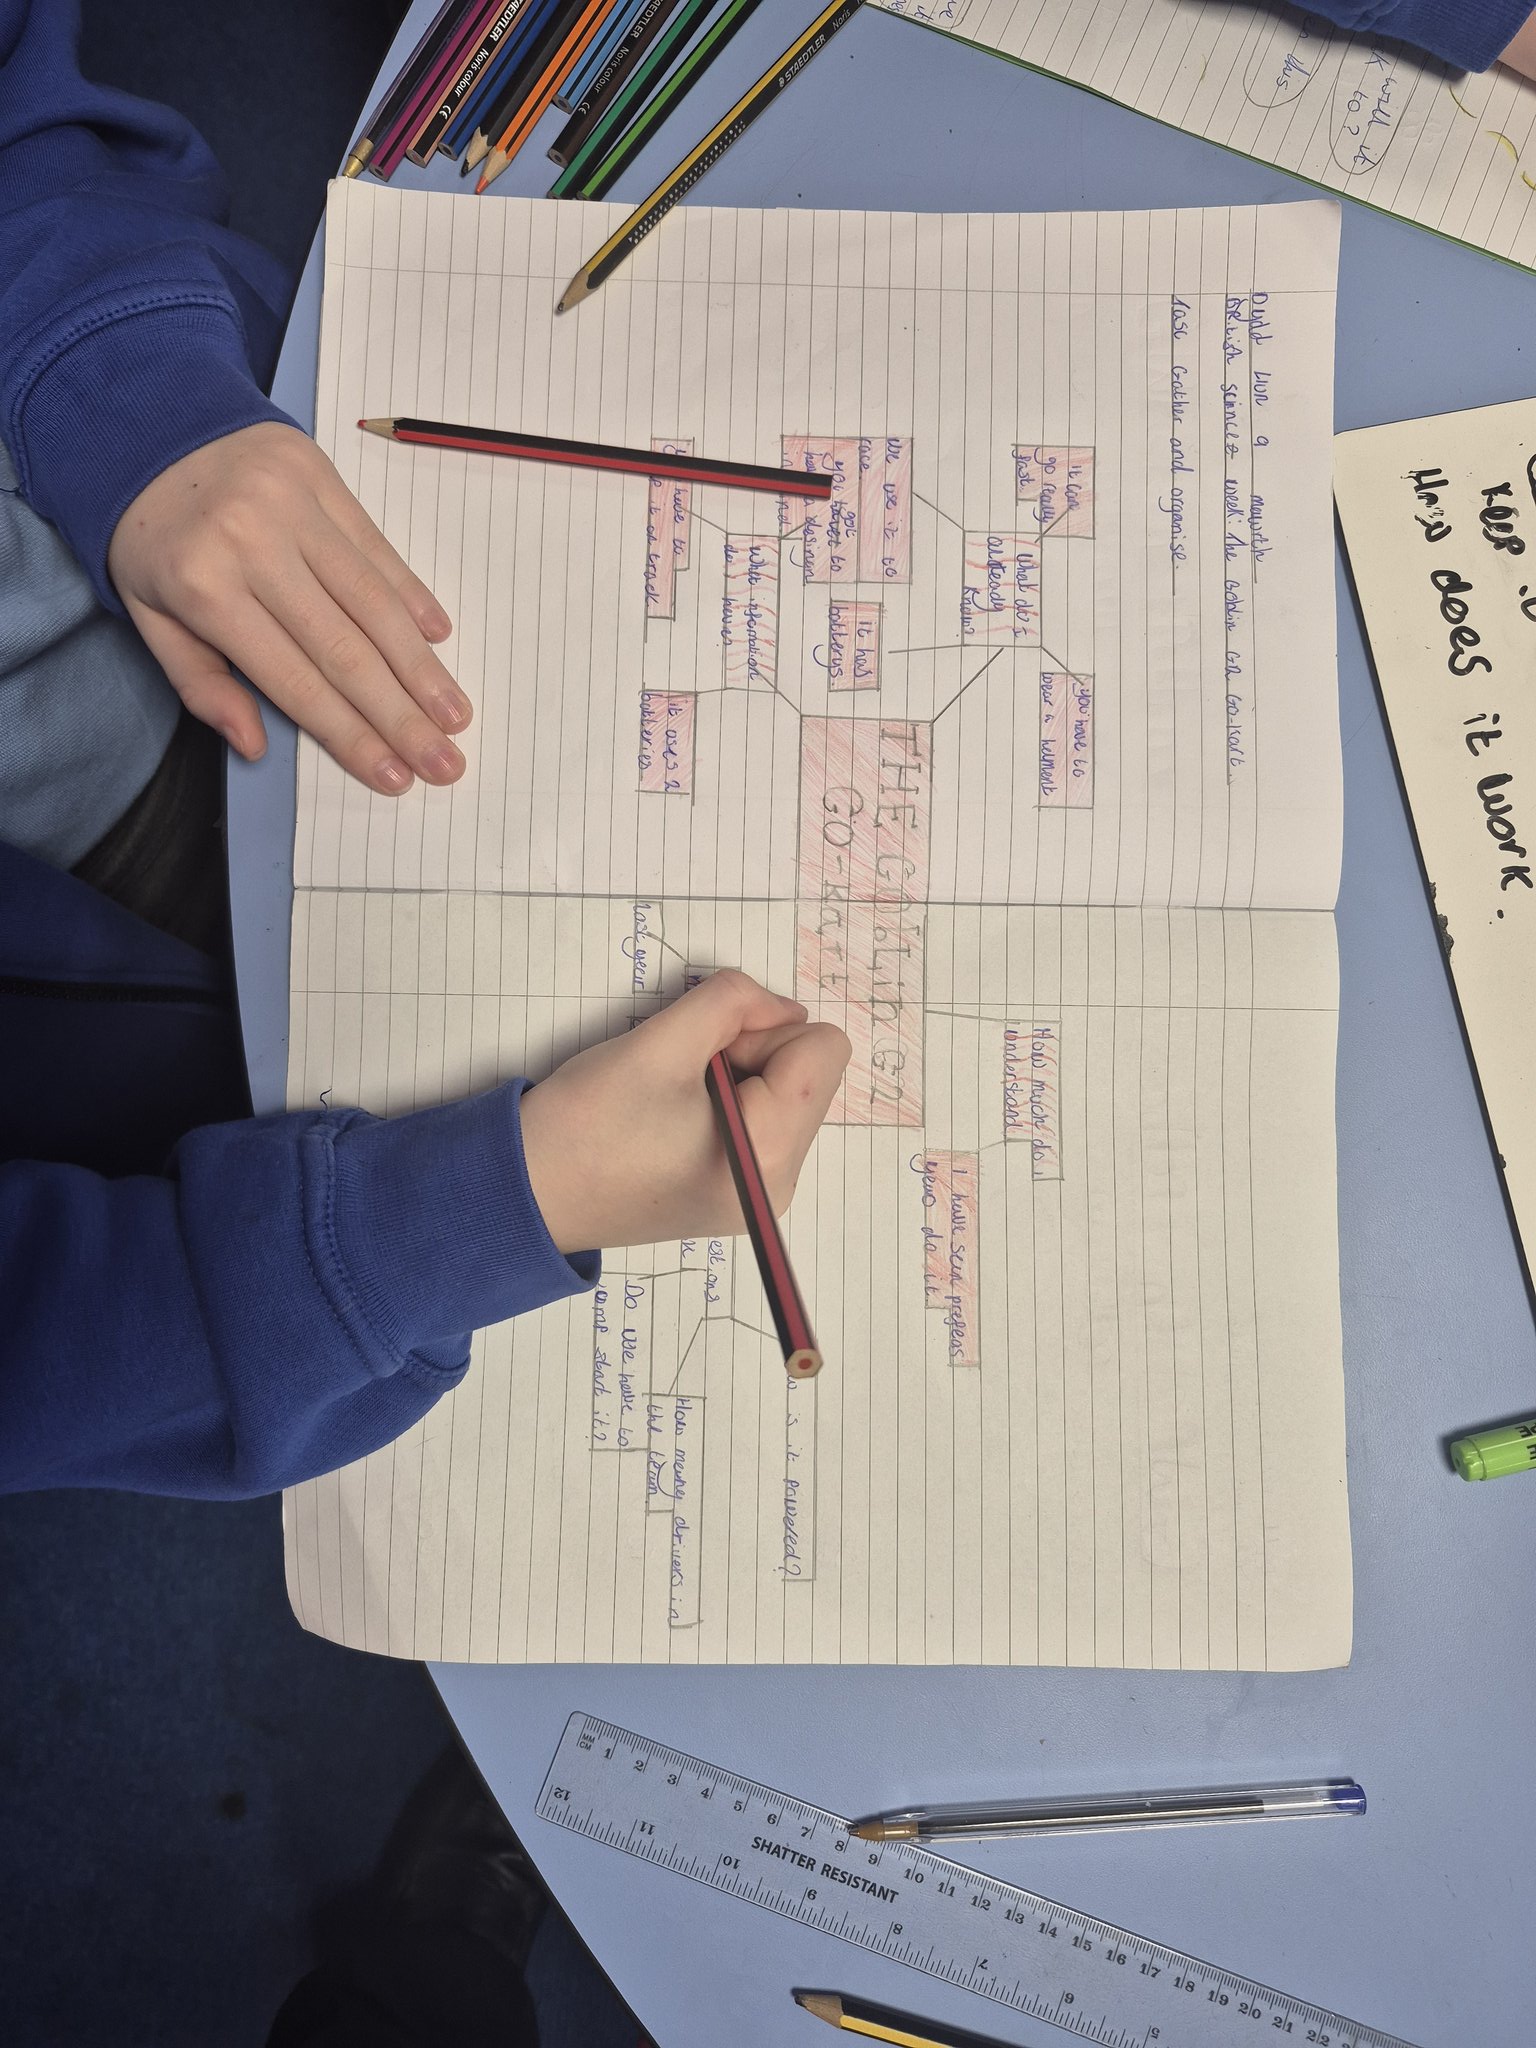 Dydd Llun 9 mawrth
British science week: The Goblin G2 Go-kart.
Tasc Gather and organise.
it can
go really
fast
What do I
alsteady
Know?
you have to
wear a helment
We use it to
race.
it has
batterys.
got
you have to
a desingn
What infomation
do I have?
have to
it on track
it uses 2
batteries.
THE GOblin G2
GO-kart
How much do i
understand.
I have seen prefeas
years do it.
last year
estions
is it powered?
How meny drivers in
the team
Do we have to
jump start it?
does it work.
How
to?
it
this
STAEDTLER Noris colour
STAEDTLER Noris colour
STAEDTLER Noris
MM
CM
1 2 3 4 5 6 7 8 9 10 11 12 13 14 15 16 17 18 19 20 21 22
SHATTER RESISTANT
12 11 10 9 8 7 6 5